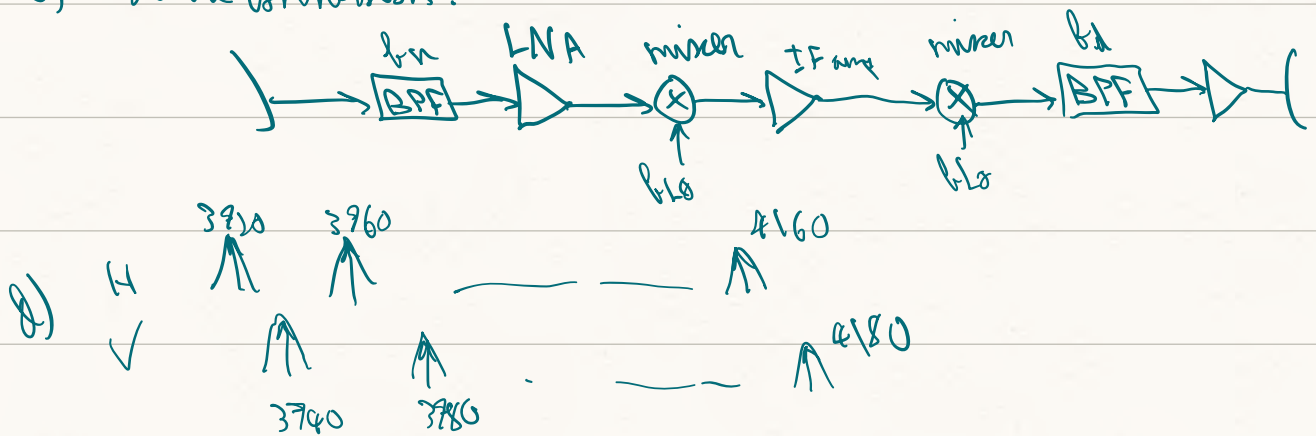 fu LNA mixer IF amp mixer fd
BPF BPF
fLo fLo
3920 3960 4160
d) H
V 4180
3740 3780